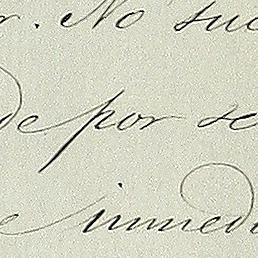 r. No suc
de por se
e inmedi